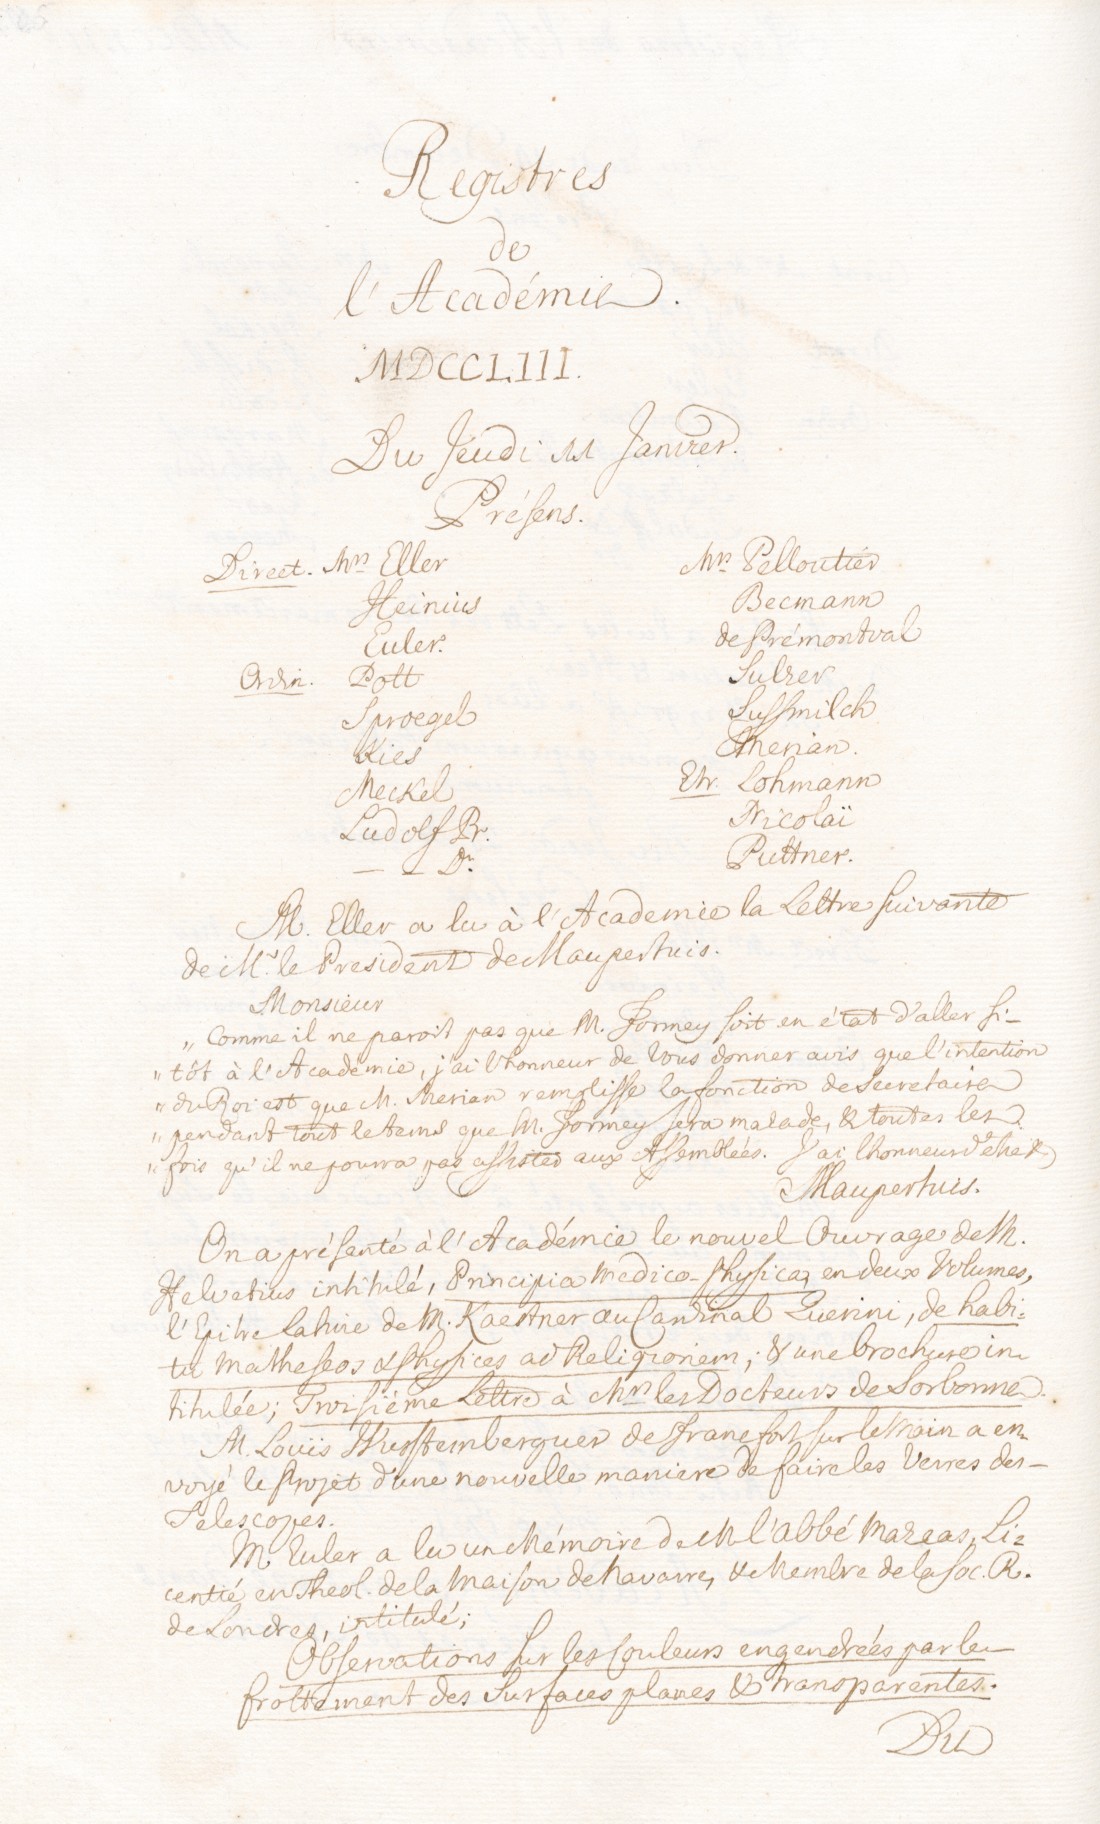 Registres
de
l'Académie.
MDCCLIII.
Du Jeudi 11 Janvier.
Présens.
Direct. Mrs Eller
Heinius
Euler.
Ordin. Pott
Sproegel
Kies
Meckel
Ludolf Pr.
— — Dr.
Mrs Pelloutier
Becmann
de Prémontval
Sulzer
Sussmilch
Merian.
Etr. Lohmann
Nicolaï
Puttner.
M. Eller a lu à l'Academie la Lettre suivante
de Mr. le President de Maupertuis.
Monsieur
„ Comme il ne paroit pas que M. Formey soit en état d'aller si-
„ tôt à l'Académie, j'ai l'honneur de Vous donner avis que l'intention
„ du Roi est que M. Merian remplisse la fonction de Secretaire
„ pendant tout le tems que M. Formey sera malade, & toutes les
„ fois qu'il ne pourra pas assister aux Assemblées. J'ai l'honneur d'etre &
Maupertuis.
On a présenté à l'Académie le nouvel Ouvrage de M.
Helvetius intitulé, Principia Medico-Physica, en deux Volumes,
l'Epitre latine de M. Kaestner au Cardinal Querini, de habi-
tu Matheseos & Physices ad Religionem; & une brochure in-
titulée; Troisiéme Lettre à Mrs les Docteurs de Sorbonne.
M. Louïs Wurstemberguer de Francfort sur le Main a en-
voyé le Projet d'une nouvelle maniere de faire les Verres des
Telescopes.
M. Euler a lu un Mémoire de M l'abbé Mazeas, Li-
centié en Theol. de la Maison de Navarre, & Membre de la Soc. R.
de Londres, intitulé;
Observations sur les Couleurs engendrées par le
frottement des Surfaces planes & transparentes.
Du